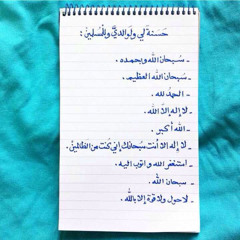 حسنة لي ولوالديّ والمسلمين :
- سبحان الله وبحمده .
- سبحان الله العظيم .
- الحمد لله .
- لا إله إلا الله .
- الله أكبر .
- لا إله إلا أنت سبحانك إني كنت من الظالمين .
- استغفر الله و اتوب اليه .
- سبحان الله .
- لا حول ولا قوة إلا بالله .